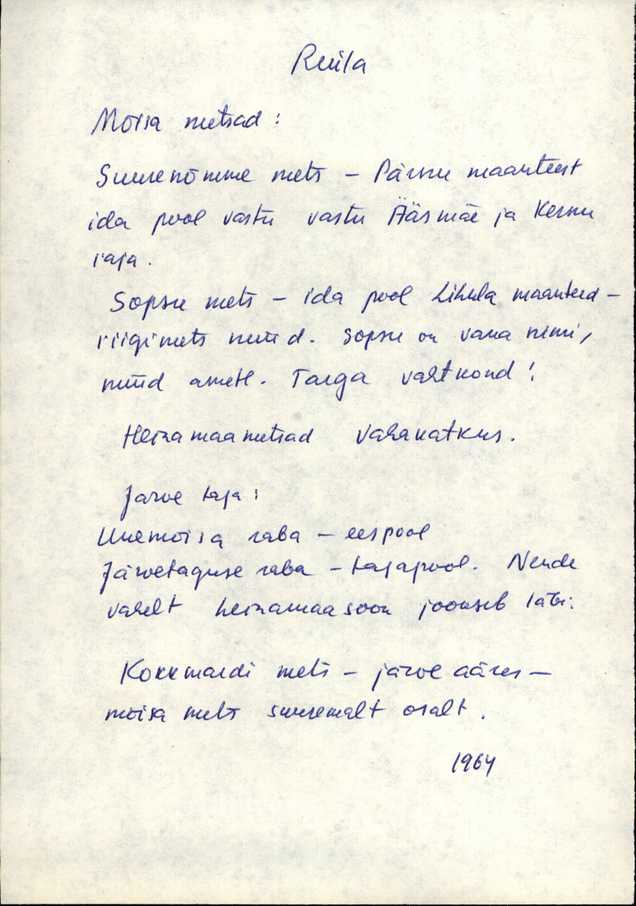 Ruila
Mõisa metsad:
Suurenõmme mets – Pärnu maanteest
ida pool vastu vastu Ääsmäe ja Kernu
raja.
Sopsu mets – ida pool Lihula maanteed –
riigimets nüüd. Sopsu on vana nimi,
nüüd ametl. Taga vahtkond!
Heinamaametsad vahakatkus.
Järve taga:
Uuemõisa raba – eespool
Järvetaguse raba – tagapool. Nende
vahelt heinamaasoon jookseb läbi.
Kokkmardi mets – järve ääres –
mõisa mets suuremalt osalt.
1964